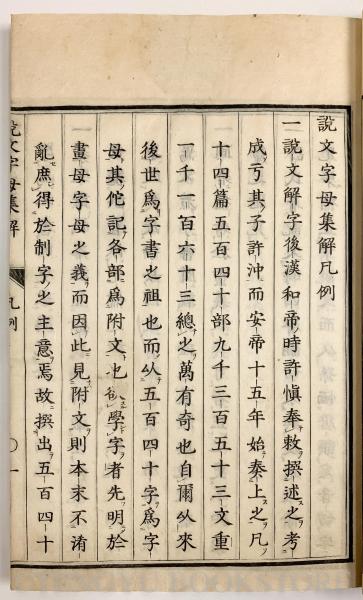 說文字母集解凡例
一說文解字後漢和帝時許愼奉敕撰述之考
成亏其子許沖而安帝十五年始奏上之凡
十四篇五百四十部九千三百五十三文重
一千一百六十三總之萬有奇也自爾从來
後世爲字書之祖也而从五百四十字爲字
母其佗記各部爲附文也學字者先明於
畫母字母之義而因此見附文則本末不淆
亂庶得於制字之主意焉故撰出五百四十
說文字母集解 凡例 〇一